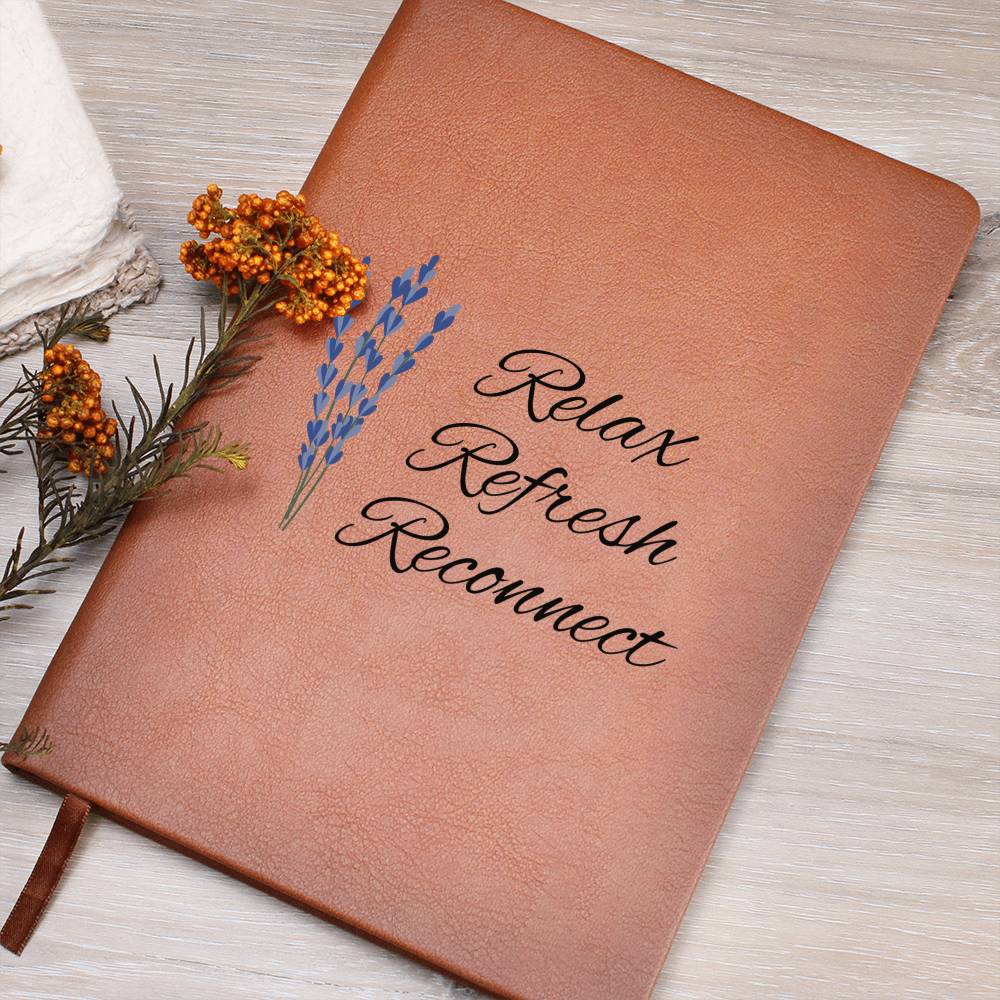 Relax
Refresh
Reconnect